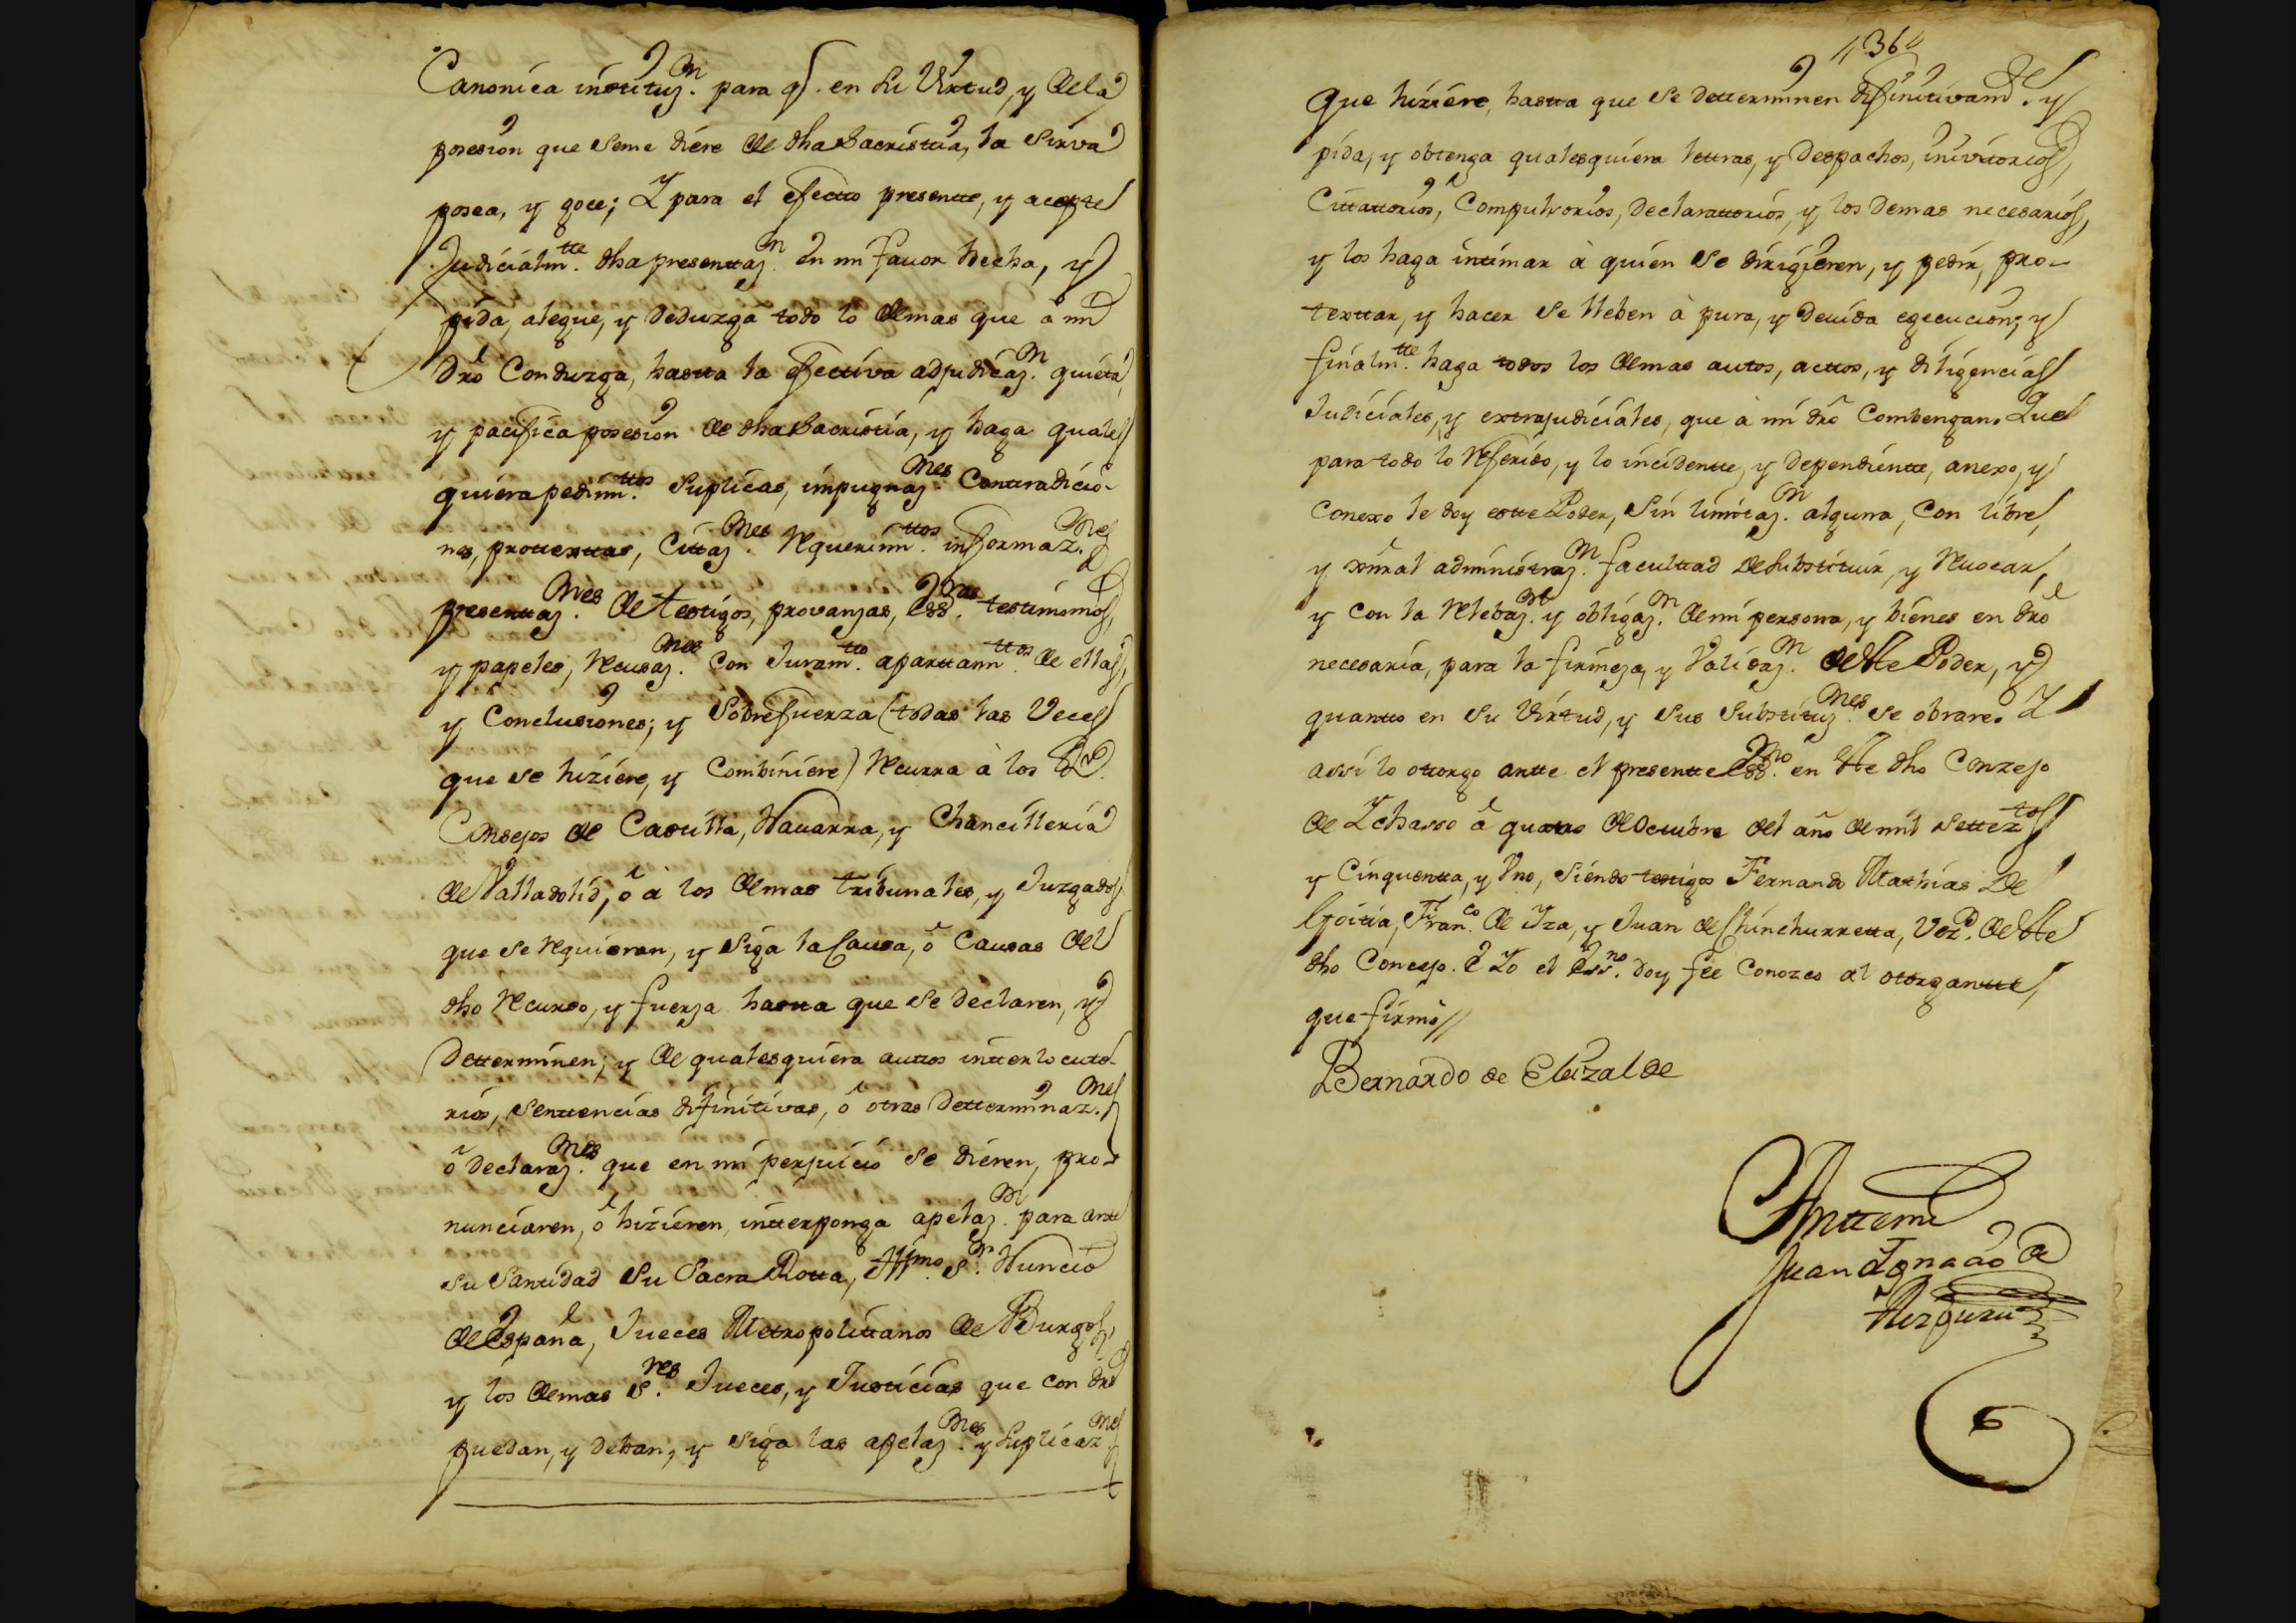 Canonica instituz.n para q̃. en su Virtud, y de la
posesion que seme diere de dha Sacristia, la sirva
posea, y goce; Y para el efectto presentte, y acepte
Judicialm.tte dha presenttaz.n en mi favor hecha, y
pida, alegue, y deduzga todo lo demas que â mi
dr̃o Conduzga, hastta la efecttiva adjudicaz.n quieta,
y pacifica posesion de dha Sacristia, y haga quales
quiera pedimt.tos Suplicas, impugnaz.nes Conttradicio-
nes, prottextas, Cittaz.nes Requerim.ttos informaz.nes
presenttaz.nes de testigos, provanzas, ess.ras testimonios,
y papeles, Recusaz.nes Con Juram.tto aparttam.ttos de ellas,
y Conclusiones; y Sobrefuerza (todas las Veces
que se hiziere, y Combiniere) Recurra à los R.s
Consejos de Castilla, Navarra, y Chancilleria
de Valladolid, ô â los demas tribunales, y Juzgados
que se Requieran, y Siga la Causa, ô Causas del
dho Recurso, y fuerza hastta que se declaren, y
Detterminen; y de qualesquiera auttos intterlocuto-
rios, Senttencias difinitivas, ô otras Detterminaz.nes
ô declaraz.nes que en mi perjuicio se dieren, pro-
nunciaren, ô hizieren, intterponga apelaz.n para antte
su Santidad Su Sacra Rotta, Ill.mo S.r Nuncio
de España, Jueces Metropolittanos de Burgos,
y los demas S.res Jueces, y Justicias que con dr̃o
puedan, y deban, y siga las apelaz.nes y Suplicaz.nes
436
que hiziere, hastta que se detterminen difinitivam.te y
pida, y obtenga qualesquiera lettras, y Despachos, inivitorios,
Cittattorios, Compulsorios, Declarattorios, y los demas necesarios,
y los haga intimar à quien se dirigieren, y pedir, pro-
texttar, y hacer se lleben à pura, y devida egecucion; y
finalm.tte haga todos los demas autos, acttos, y diligencias
Judiciales, y extrajudiciales, que à mi dr̃o Combengan. Que
para todo lo Referido, y lo incidentte, y dependientte, anexo, y
conexo le doy estte Poder, Sin limitaz.n alguna, Con libre,
y xnral administraz.n facultad de Substituir, y Revocar,
y con la Relebaz.n y obligaz.n de mi persona, y bienes en dr̃o
necesaria, para la firmeza, y Validaz.n de estte Poder, y
quantto en su Virtud, y sus Substituz.nes se obrare. Y
assi lo ottorgo antte el presentte ess.no en estte dho Conzejo
de Ychasso â quatro de Octubre del año de mil settez.tos
y Cinquentta, y Uno, siendo testigos Fernando Mathias de
Goitia, Fran.co de Yza, y Juan de Chinchurretta, Vez.s de estte
dho Concejo. ê Yo el ess.no doy fee conozco al otorgantte,
que firmò//
Bernardo de Elizalde
Antte mi
Juan Ignacio de